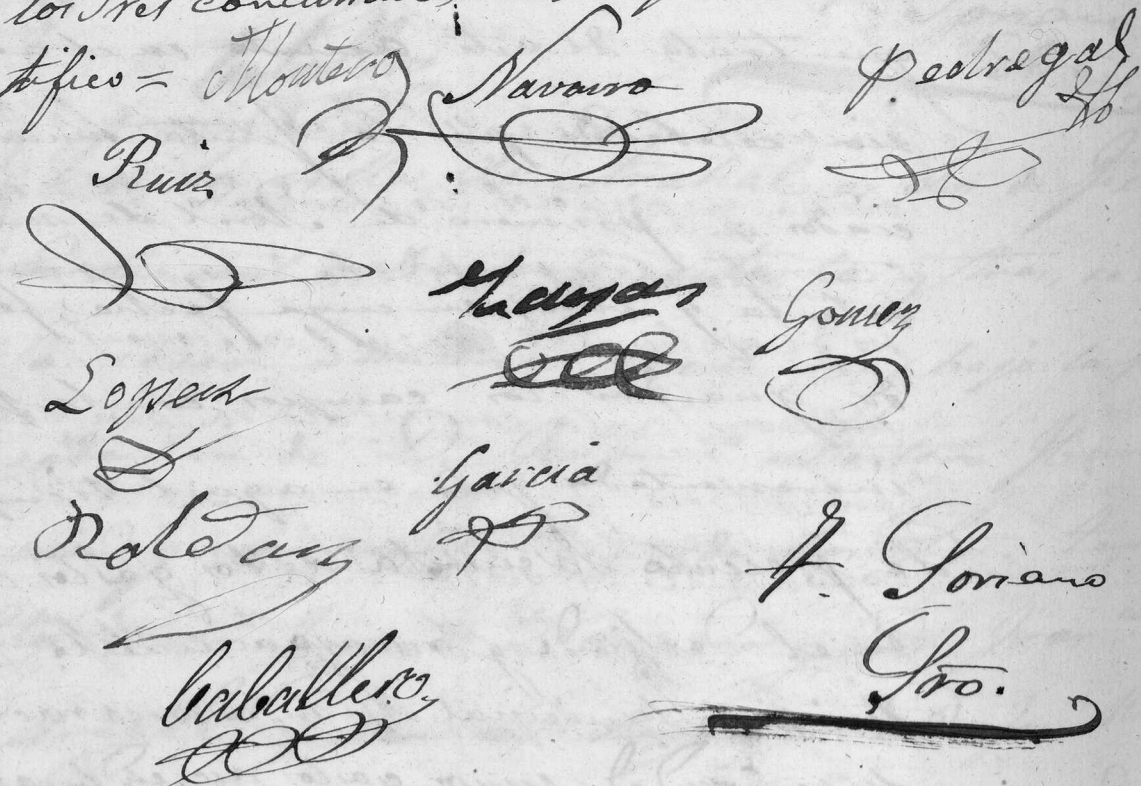 los tres
tifico = Montero Navarro Pedregal
Ruiz
Zayas Gomez
Lopez
Garcia
Roldan
F. Soriano
Srō.
Caballero